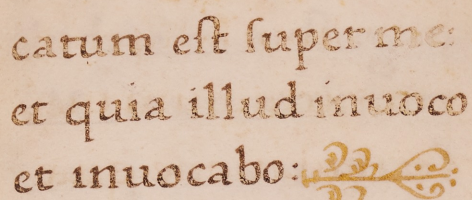 catum est super me:
et quia illud inuoco
et inuocabo: